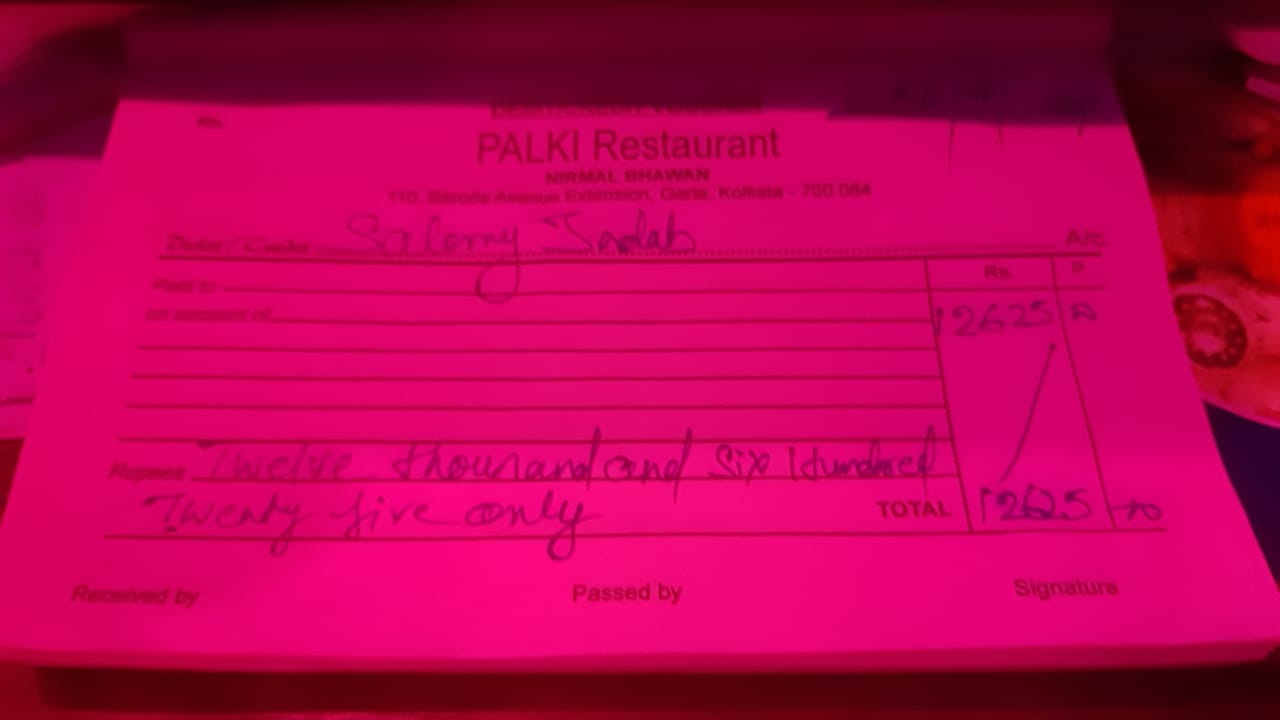 DEBIT/CREDIT VOUCHER
PALKI Restaurant
NIRMAL BHAWAN
110, Baroda Avenue Extension, Garia, Kolkata - 700 084
Debit / Credit Salerny A/c.
Paid to Rs. P
on account of 12625
Rupees Twelve thousand and Six Hundred
Twenty five only TOTAL 12625
Received by Passed by Signature